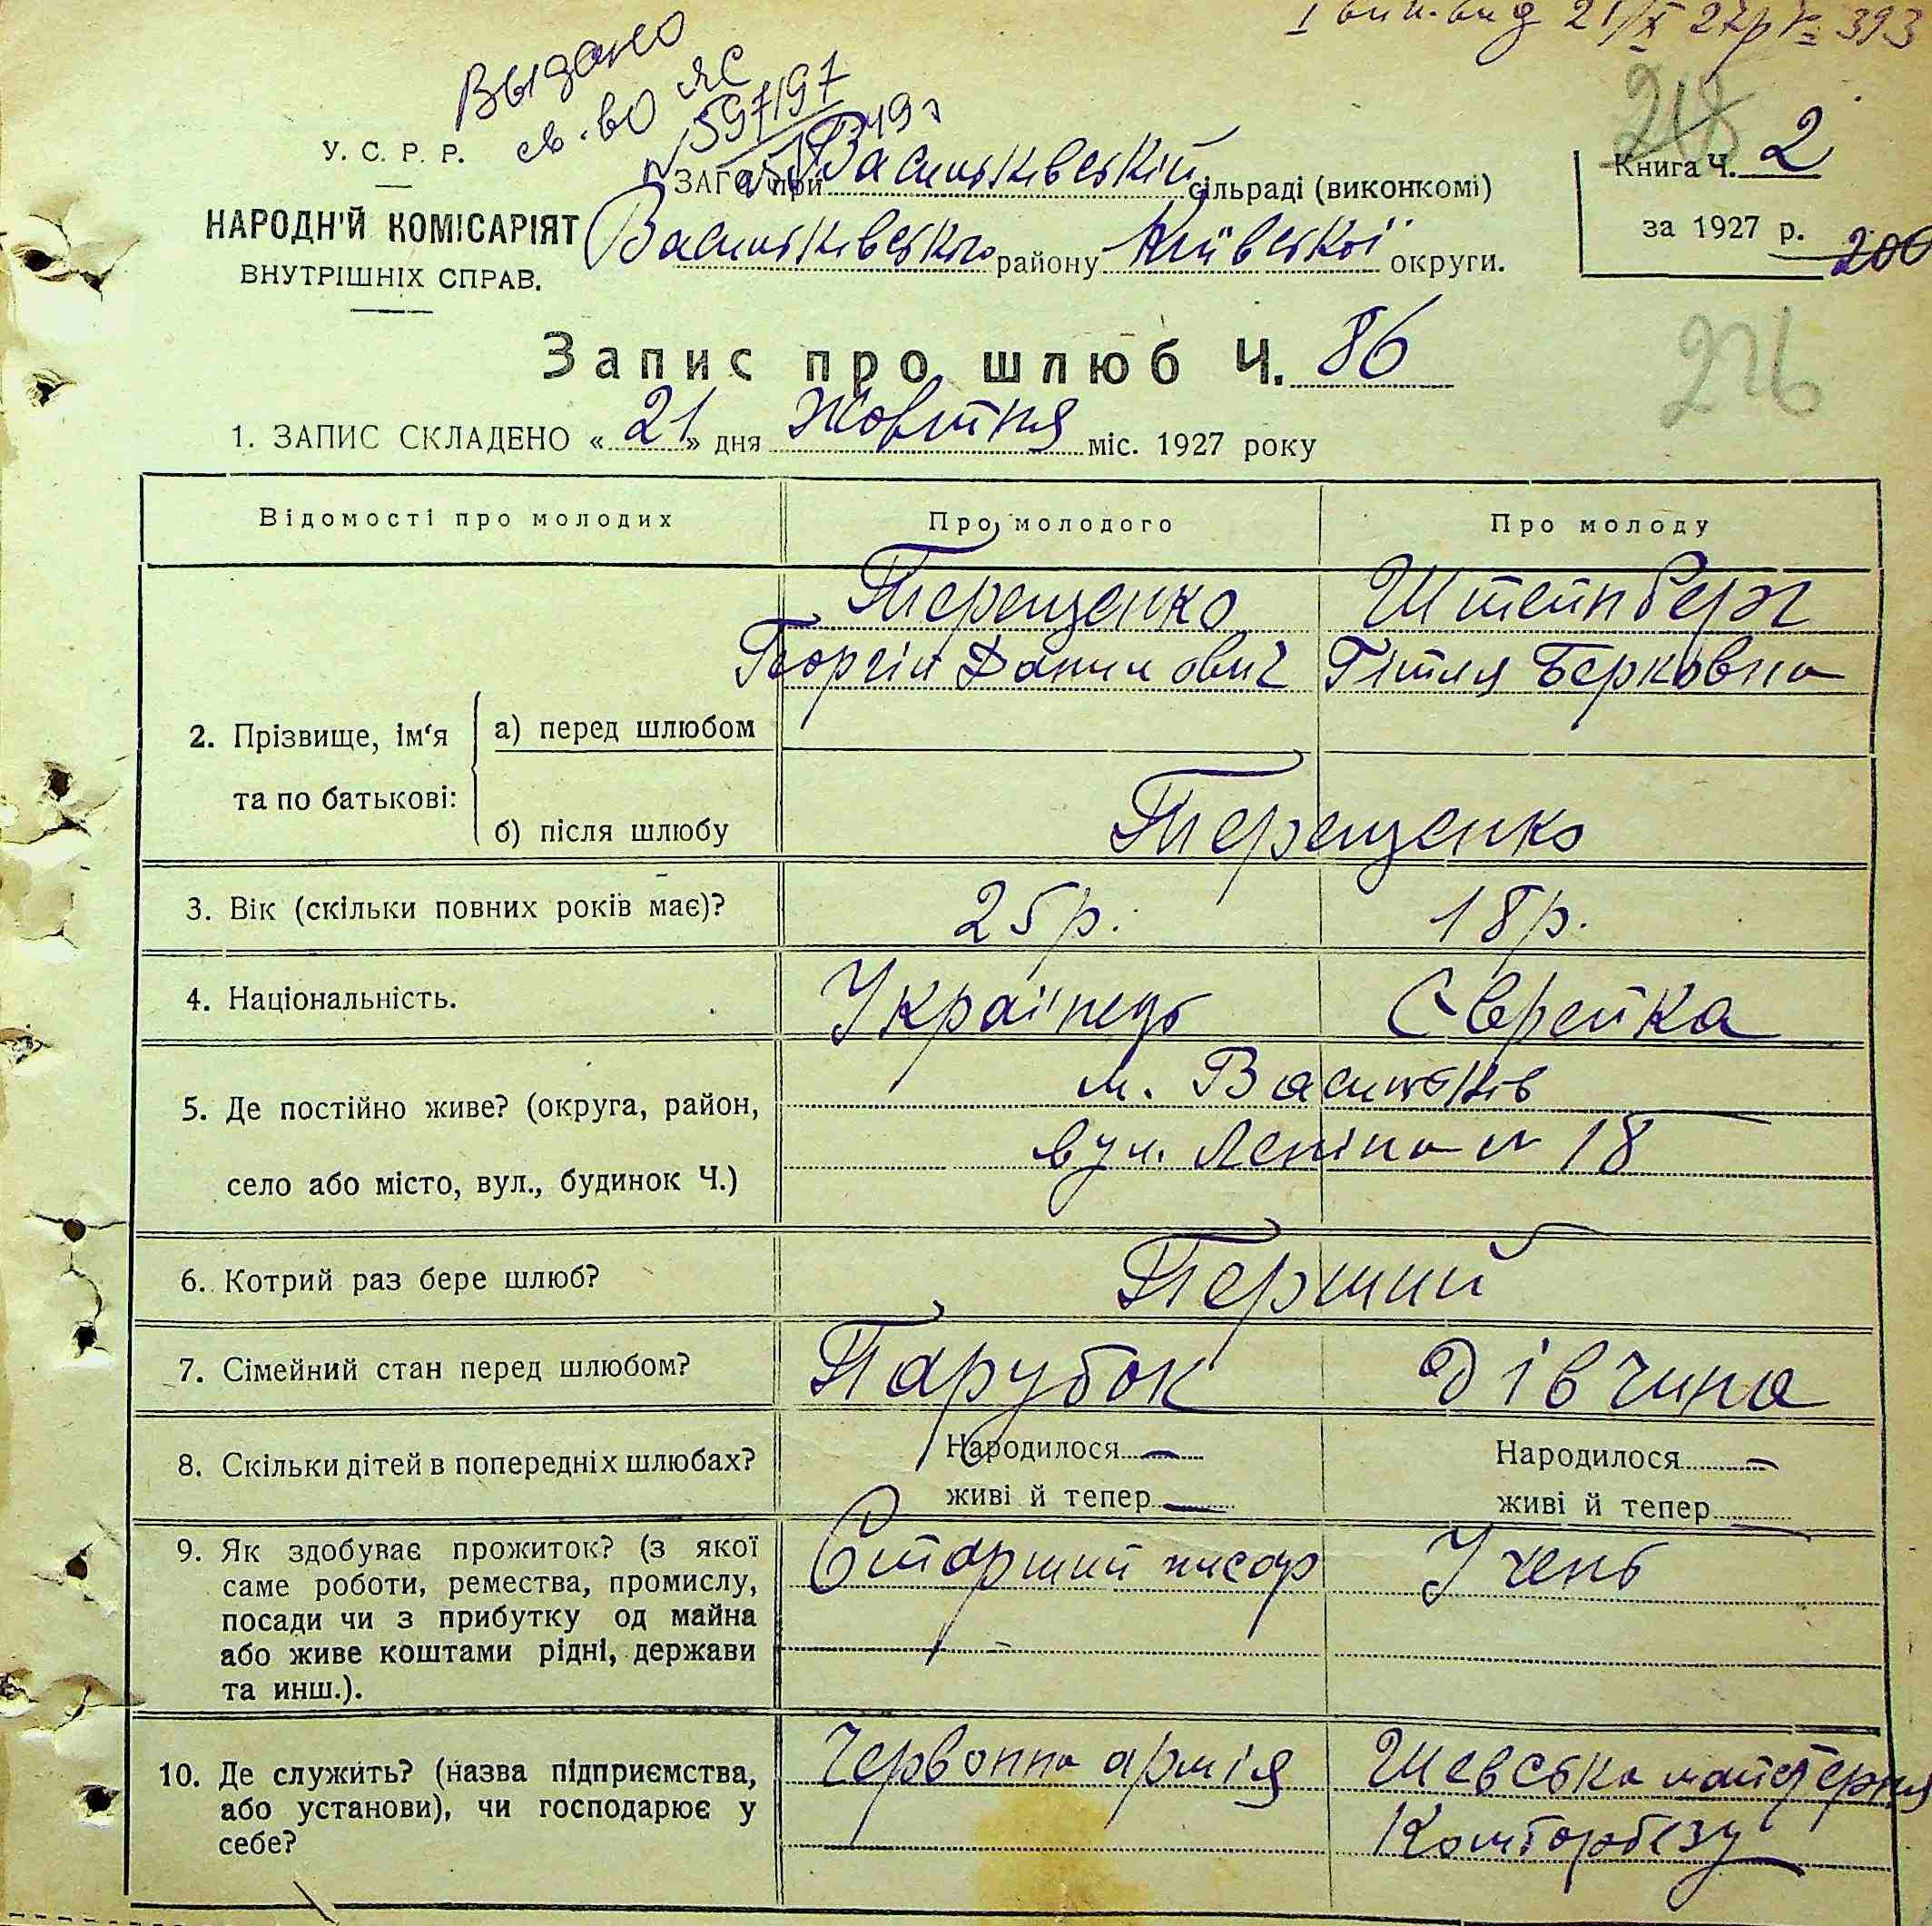 І вип. вид 21/X 27р № 393
Выдано
св-во ЯС
№ 597197
218
У. С. Р. Р.
НАРОДНІЙ КОМІСАРІЯТ
ВНУТРІШНІХ СПРАВ.
ЗАГС при Васильківській сільраді (виконкомі)
Васильківського району Київської округи.
Книга Ч. 2
за 1927 р.
200
226
Запис про шлюб Ч. 86
1. ЗАПИС СКЛАДЕНО « 21 » дня Жовтня міс. 1927 року
Відомості про молодих Про молодого Про молоду
2. Прізвище, ім'я та по батькові:
а) перед шлюбом
Терещенко Штейнберг
Георгій Данилович Гітля Берковна
б) після шлюбу Терещенко
3. Вік (скільки повних років має)? 25 р. 18 р.
4. Національність. Українець Єврейка
5. Де постійно живе? (округа, район, м. Васильків
село або місто, вул., будинок Ч.) вул. Леніна № 18
6. Котрий раз бере шлюб? Перший
7. Сімейний стан перед шлюбом? Парубок Дівчина
8. Скільки дітей в попередніх шлюбах? Народилося — Народилося —
живі й тепер — живі й тепер —
9. Як здобуває прожиток? (з якої Старший писар Учень
саме роботи, ремества, промислу,
посади чи з прибутку од майна
або живе коштами рідні, держави
та инш.).
10. Де служить? (назва підприємства, Червонна армія Шевська майстерня
або установи), чи господарює у Комборбезу
себе?